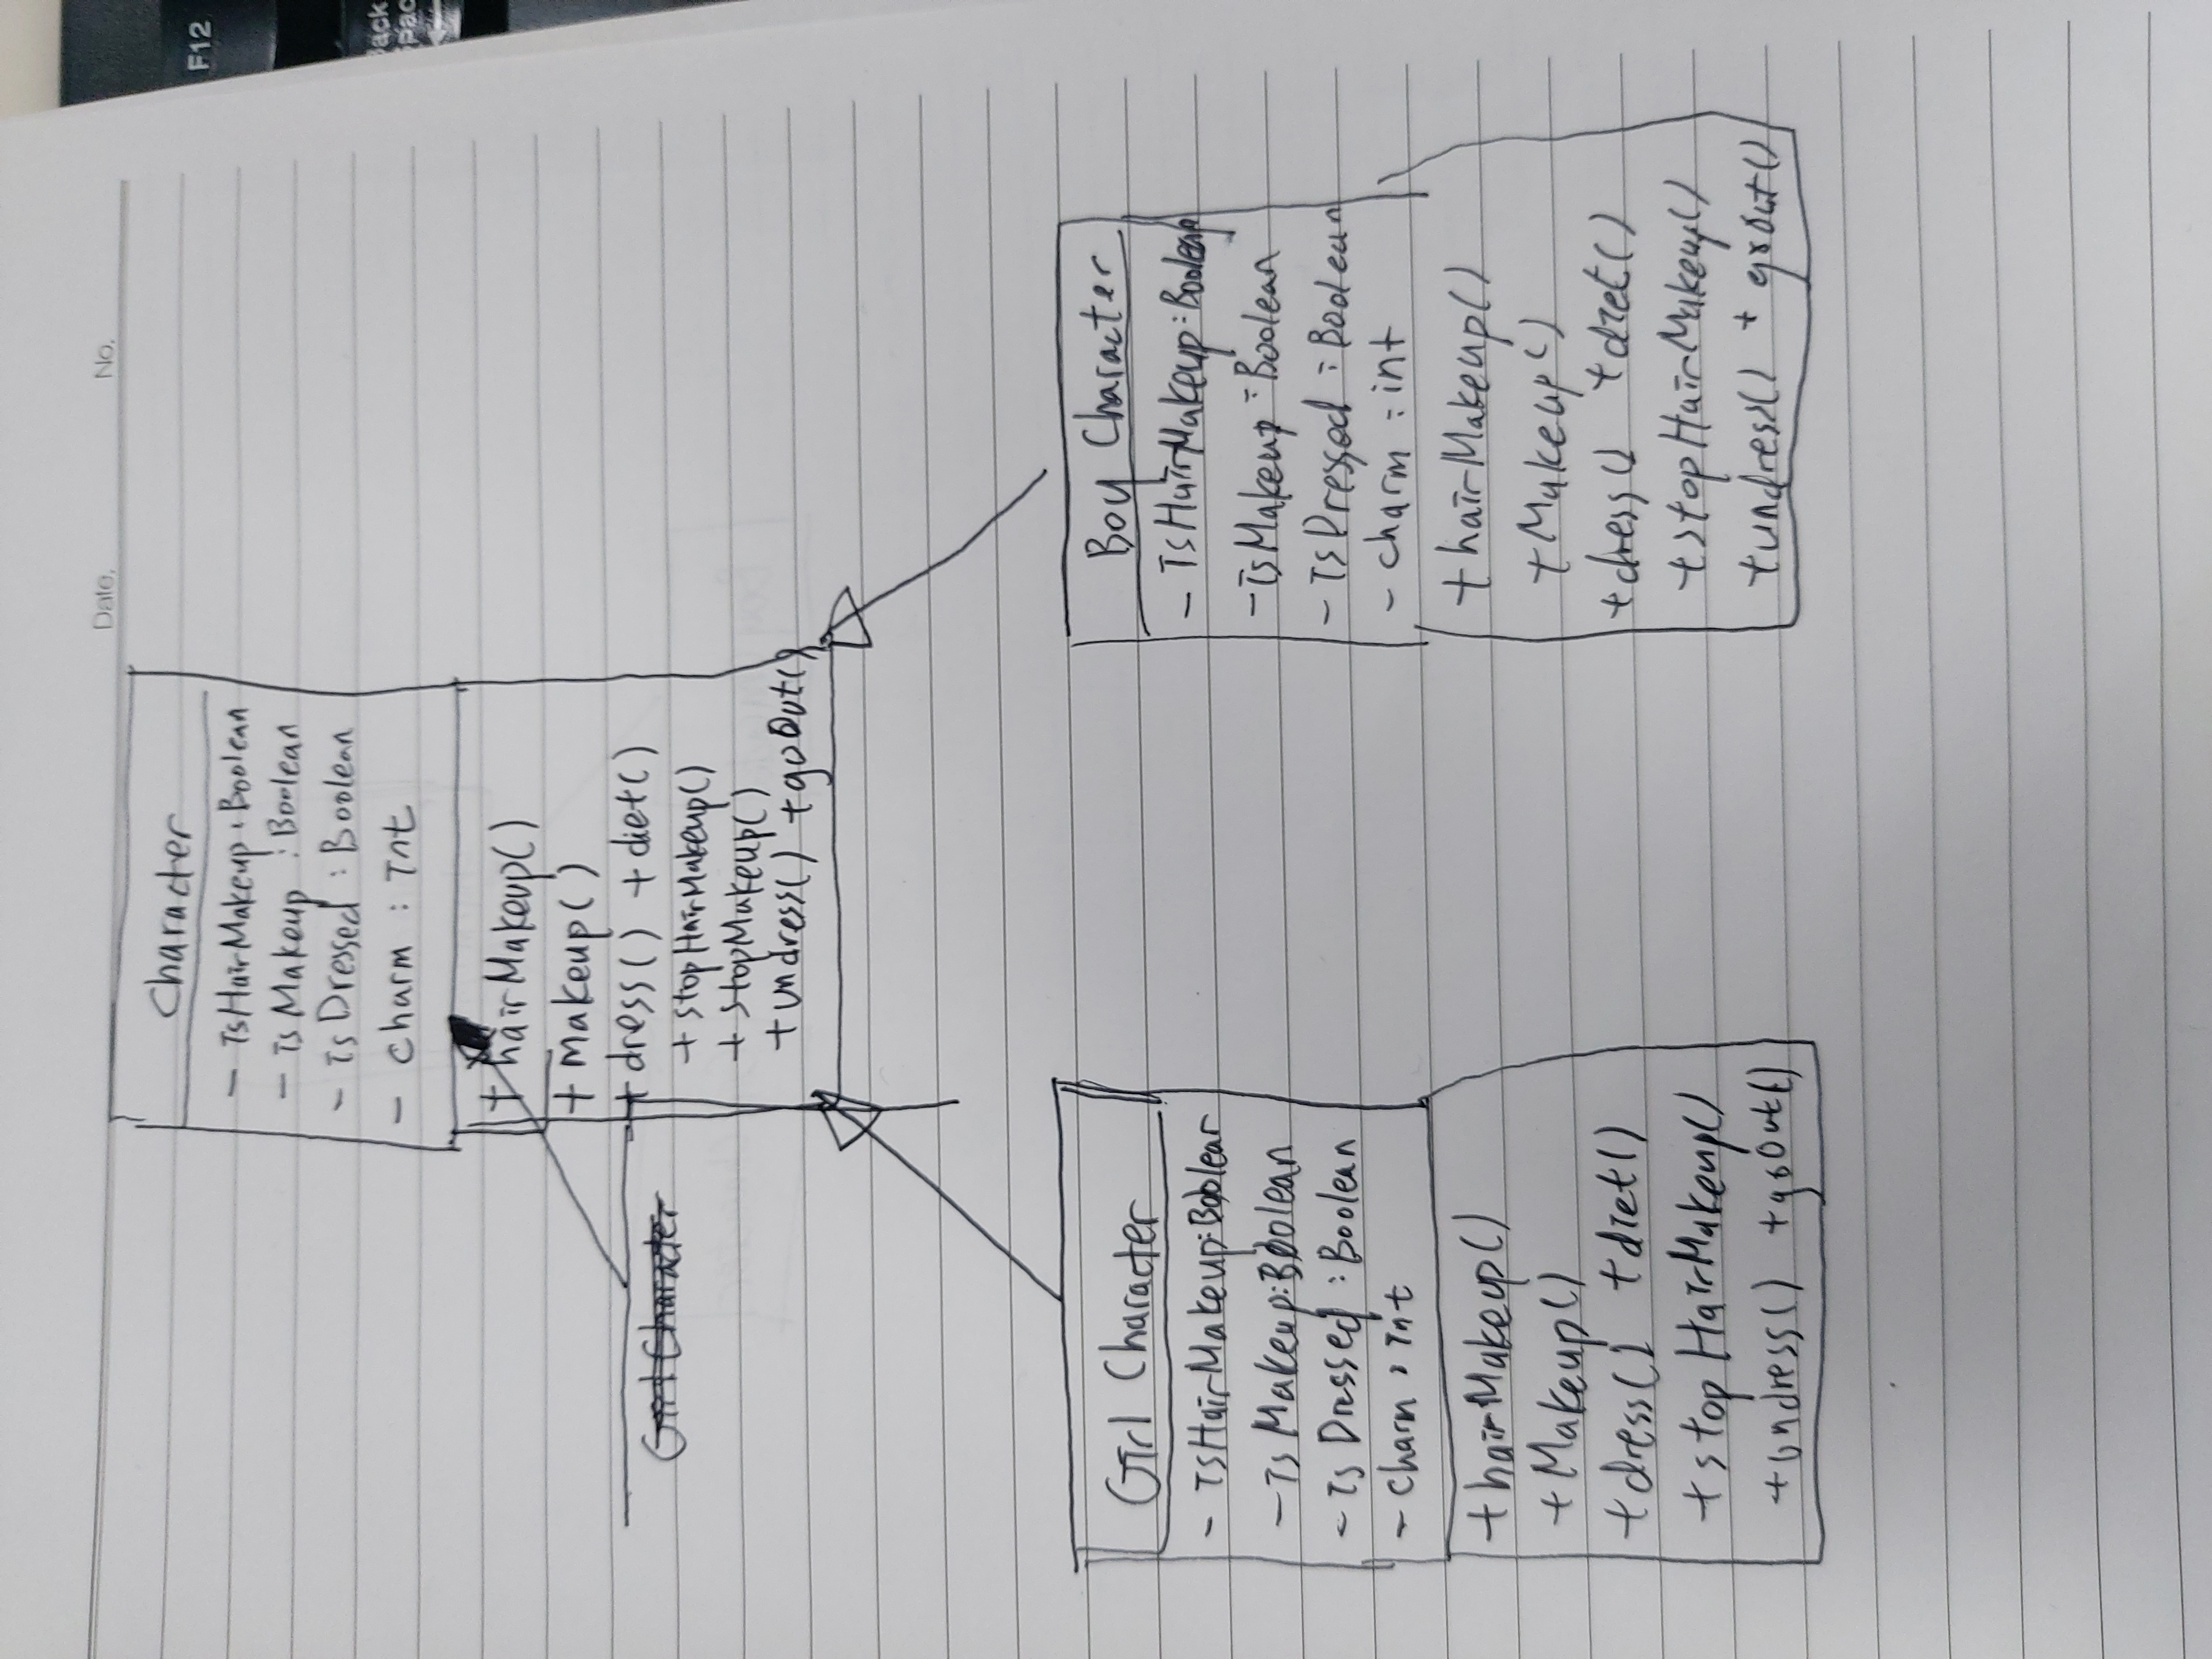 Date.
No.
F12
Character
- isHairMakeup : Boolean
- isMakeup : Boolean
- isDressed : Boolean
- charm : Int
+ hairMakeup()
+ makeup()
+ dress() + diet()
+ stopHairMakeup()
+ stopMakeup()
+ undress() + goOut()
Girl Character
Girl Character
- isHairMakeup:Boolean
- isMakeup:Boolean
- isDressed : Boolean
- charm : int
+ hairMakeup()
+ Makeup()
+ dress() + diet()
+ stopHairMakeup()
+ undress() + goOut()
Boy Character
- isHairMakeup : Boolean
- isMakeup : Boolean
- isDressed : Boolean
- charm : int
+ hairMakeup()
+ Makeup()
+ dress() + diet()
+ stopHairMakeup()
+ undress() + goOut()